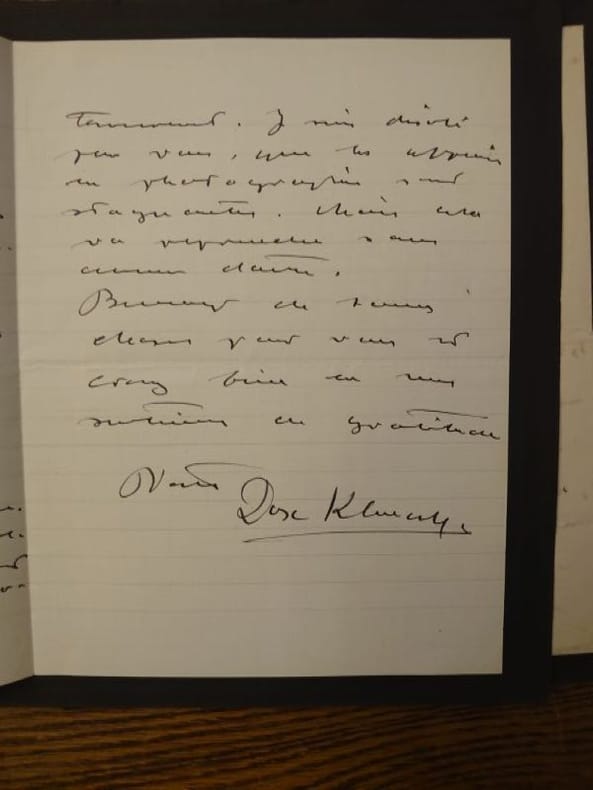 J suis désolé
pour vous, que les affaires
en photographie sont
stagnantes. Mais cela
va reprendre sans
aucun doute.
Beaucoup de
choses pour vous et
croyez bien en mes
sentiments de gratitude
Votre